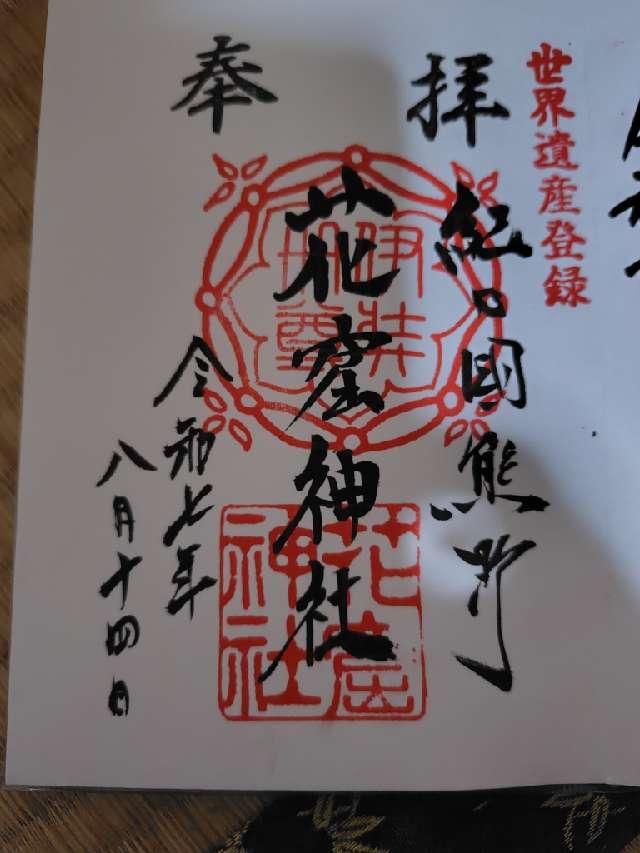 世界遺産登録
奉拝
紀国熊野
花窟神社
花窟神社
令和七年
八月十四日